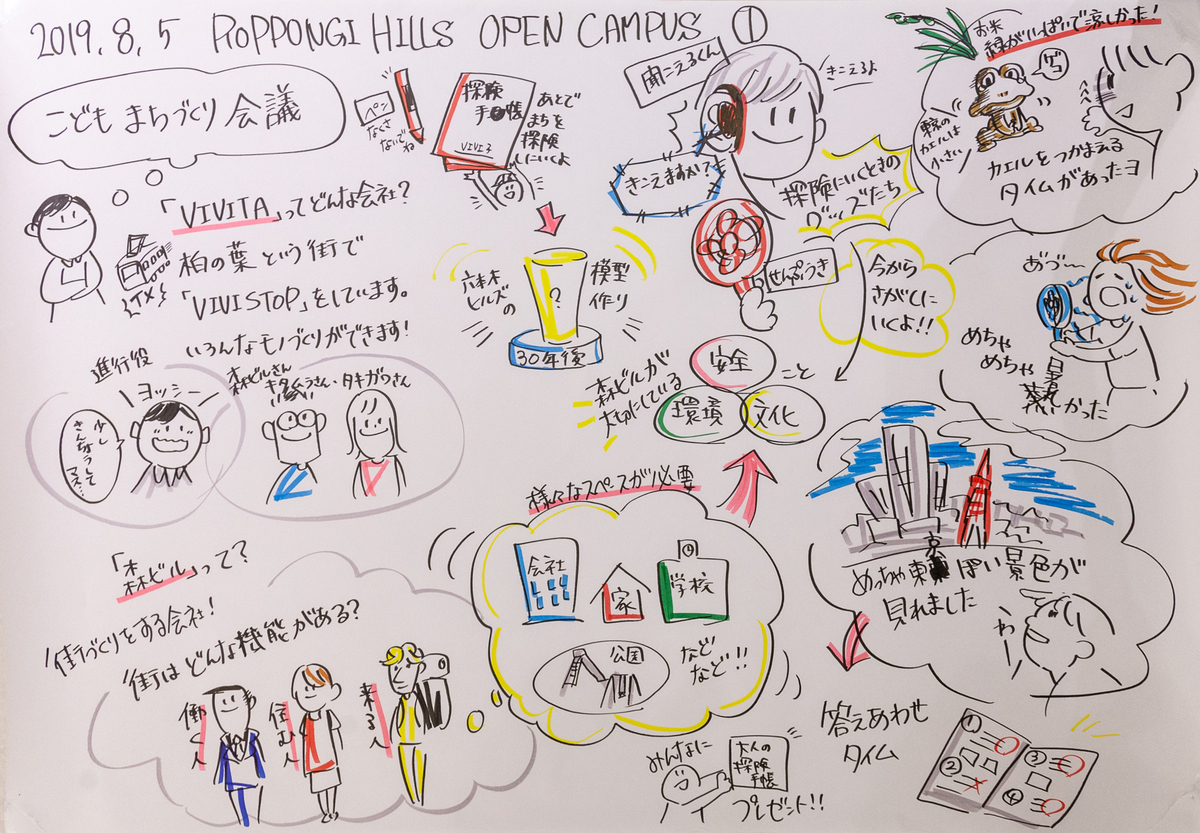 2019.8.5 ROPPONGI HILLS OPEN CAMPUS ①
こども まちづくり 会議
「VIVITA」ってどんな会社?
柏の葉という街で
「VIVISTOP」をしています。
いろんなモノづくりができます!
進行役
ヨッシー
少し
きんちょうして
マス…
森ビルさん
タキガワさん
「森ビル」って?
街づくりをする会社!
街はどんな機能がある?
働く人
住む人
来る人
ペン
なくさ
ないでね
探険
手帳
VIVITA
あとで
まちを
探険
しにいくよ
六本木
ヒルズの
?
30年後
模型
作り
聞こえるくん
きこえるよ
きこえますか?
探険にいくときの
グッズたち
せんぷうき
今から
さがしに
いくよ!!
森ビルが
大切にしている
安全
環境
文化
こと
様々なスペースが必要
会社
家
学校
公園
など
など!!
みんなに
大人の
探険
手帳
プレゼント!!
お米
緑がいっぱいで涼しかった!
ゲコ
東京の
カエルは
小さい
カエルをつかまえる
タイムがあったヨ
あづ〜
めちゃ
めちゃ
暑かった
めっちゃ東京ぽい景色が
見れました
わー
答えあわせ
タイム
①
②
③
④